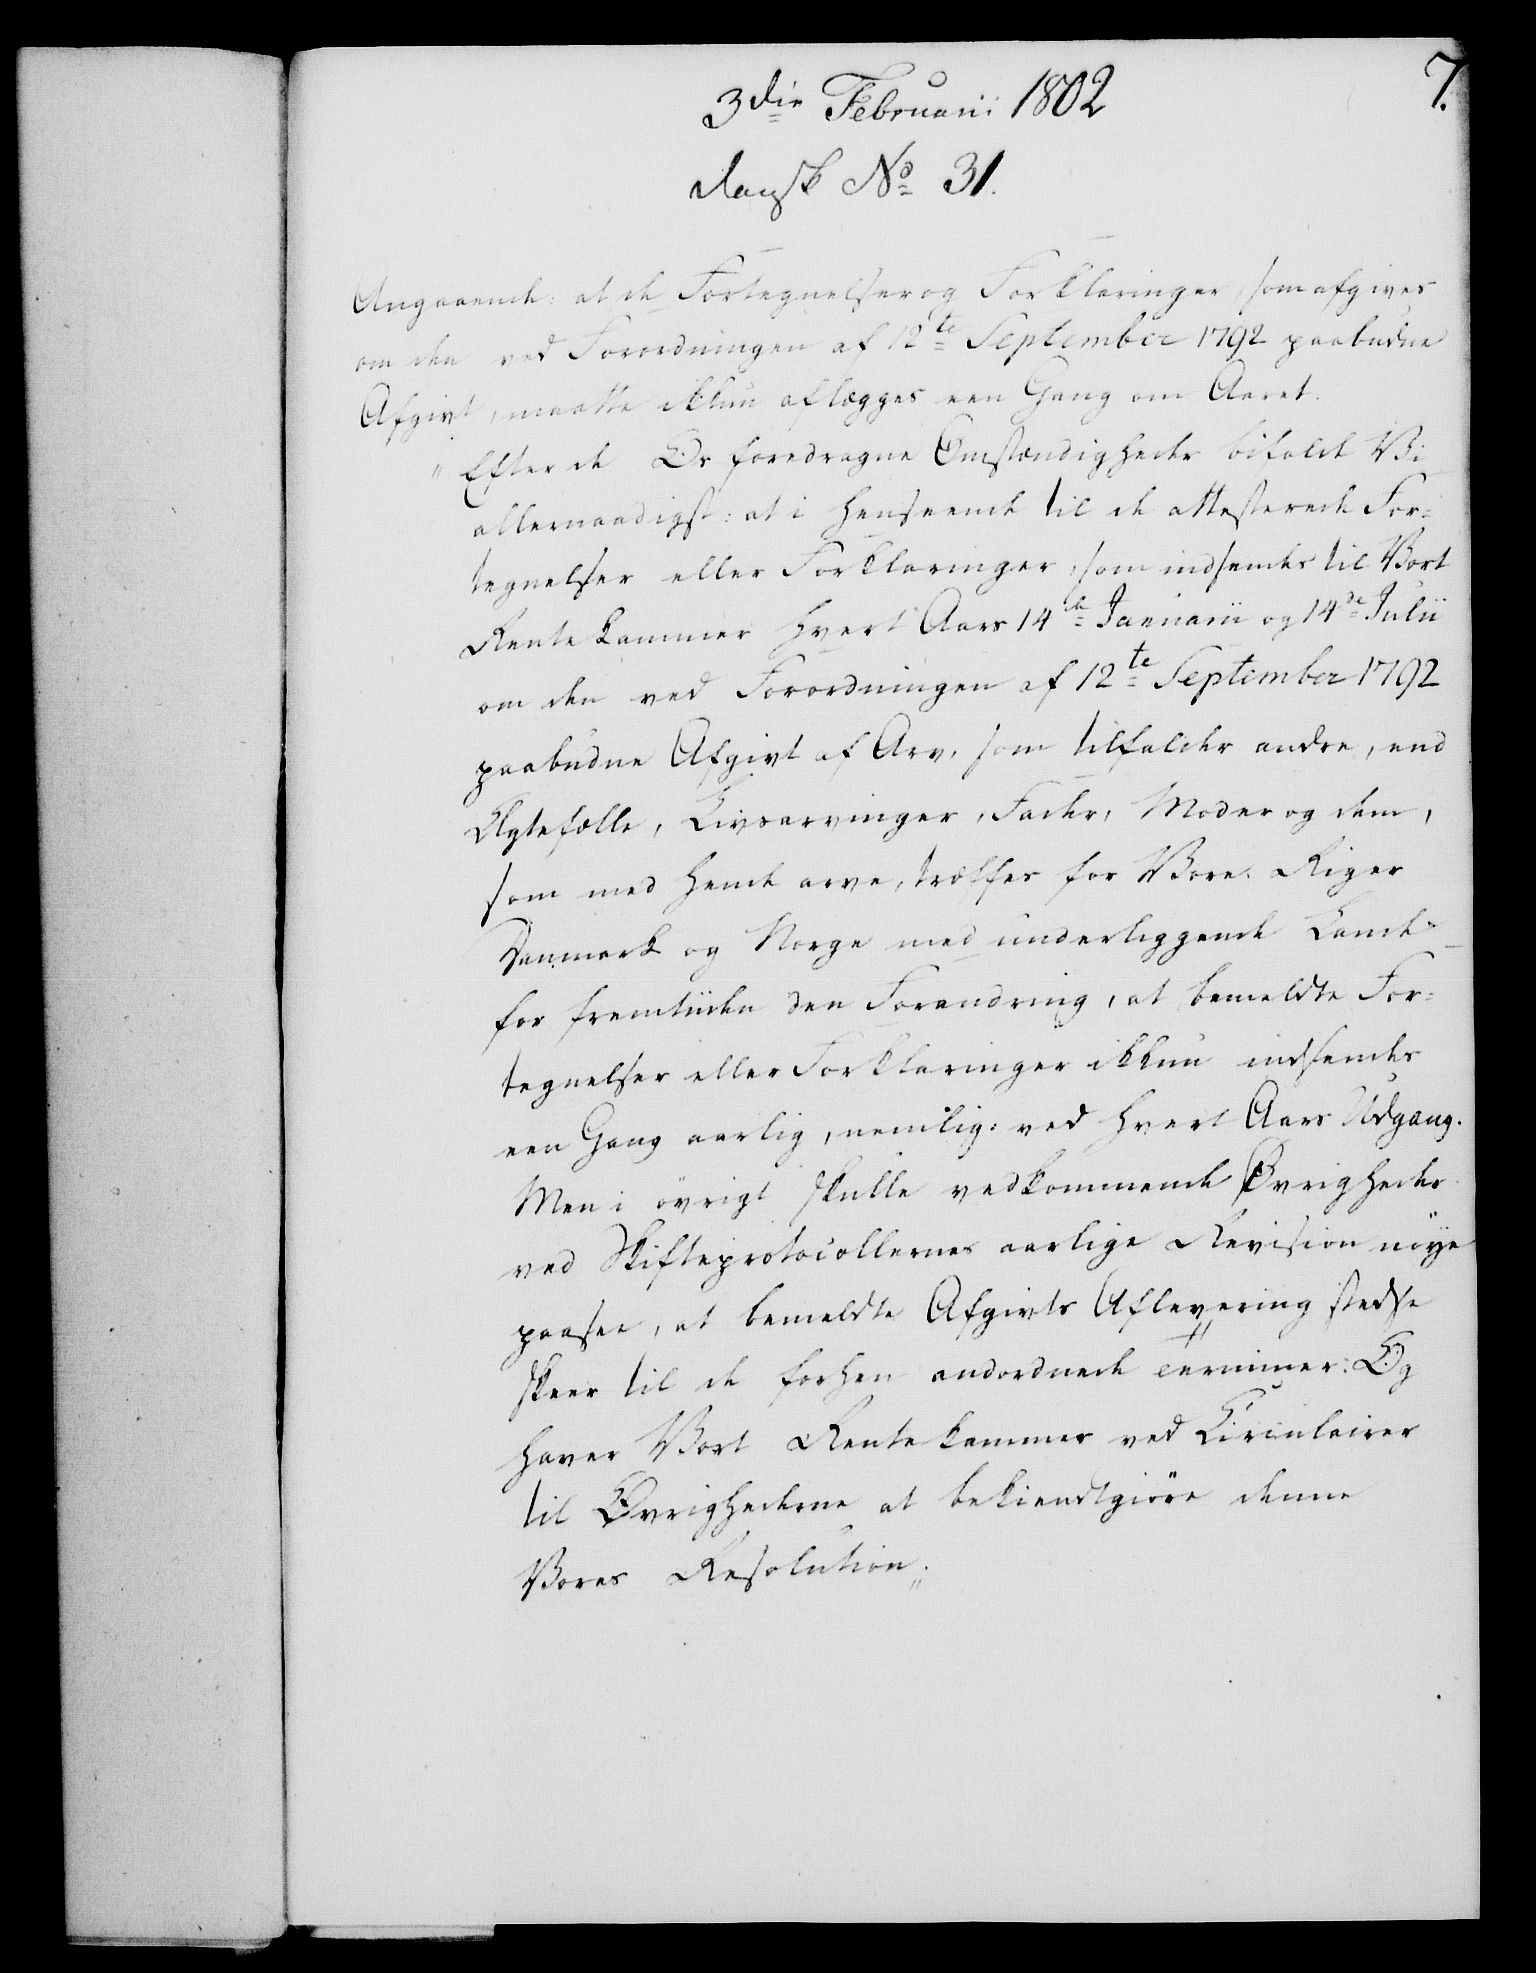 7.
3die Februarii 1802
dansk No 31.
Angaaende: at de Fortegnelser og Forklaringer, som afgives
om den ved Forordningen af 12te September 1792 paabudne
Afgivt, maatte ikkun aflægges een Gang om Aaret.
" Efter de Os foredragne Omstændigheder bifalde Vi
allernaadigst: at i Henseende til de attesterede For=
tegnelser eller Forklaringer, som indsendes til Vort
Rentekammer hvert Aars 14de Januarii og 14de Julii
om den ved Forordningen af 12te September 1792
paabudne Afgivt af Arv, som tilfalder andre, end
Ægtefælle, Livsarvinger, Fader, Moder og dem,
som med hende arve, træffes for Vore Riger
Danmark og Norge med underliggende Lande
for fremtiiden den Forandring, at bemeldte For=
tegnelser eller Forklaringer ikkun indsendes
een Gang aarlig, nemlig: ved hvert Aars Udgang.
Men i övrigt skulle vedkommende Øvrigheder
ved Skifteprotocollernes aarlige Revision nöye
paasee, at bemeldte Afgivts Aflevering stedse
skeer til de forhen andordnede Terminer: Og
haver Vort Rentekammer ved Circulairer
til Øvrighederne at bekiendtgiöre denne
Vores Resolution."